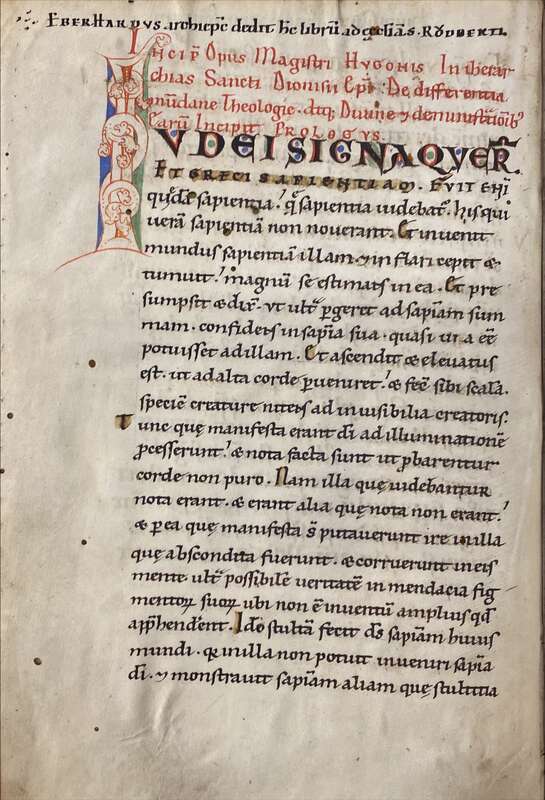 EBERHARDUS. archiepc̄ dedit hc̄ librū ad ecclīas. Rōdberti.
Incip̄ Opus Magistri HUGONIS In iherar
chias Sancti Dionisii Ep̄i. De differentia
mūdane Theologie. atq; Diuine & demonstrationib;
earū Incipit PROLOGUS.
IUDEI SIGNA QUER̄
ET GRECI SAPIENTIAM. FUIT ENĪ
quędā sapientia. quę sapientia uidebat᷑. his qui
uerā sapientiam non nouerant. Et inuenit
mundus sapientiā illam. & inflari cepit &
tumuit. magnū se estimans in ea. Et pre
sumpsit & dix̄. ut ult̄ pgeret ad sapīam sum
mam. confidens in sapīa sua. quasi uia eē
potuisset ad illam. Et ascendit & eleuatus
est. ut ad alta corde pueniret. & fec̄ sibi scalā.
speciē creature nitens ad inuisibilia creatoris.
Tunc quę manifesta erant di ad illuminationē
pcesserunt. & nota facta sunt ut pbarentur
corde non puro. Nam illa quę uidebantur
nota erant. & erant alia quę nota non erant.
& p ea quę manifesta s̄ putauerunt ire in illa
quę abscondita fuerunt. & corruerunt in eis
mente ult̄ possibilē ueritatē in mendacia fig
mentoꝝ suoꝝ ubi non ē inuentū amplius qd̄
app̄henderent. Ido stultā fecit ds̄ sapīam huius
mundi. quia in illa non potuit inueniri sapīa
di. & monstrauit sapīam aliam quę stultitia